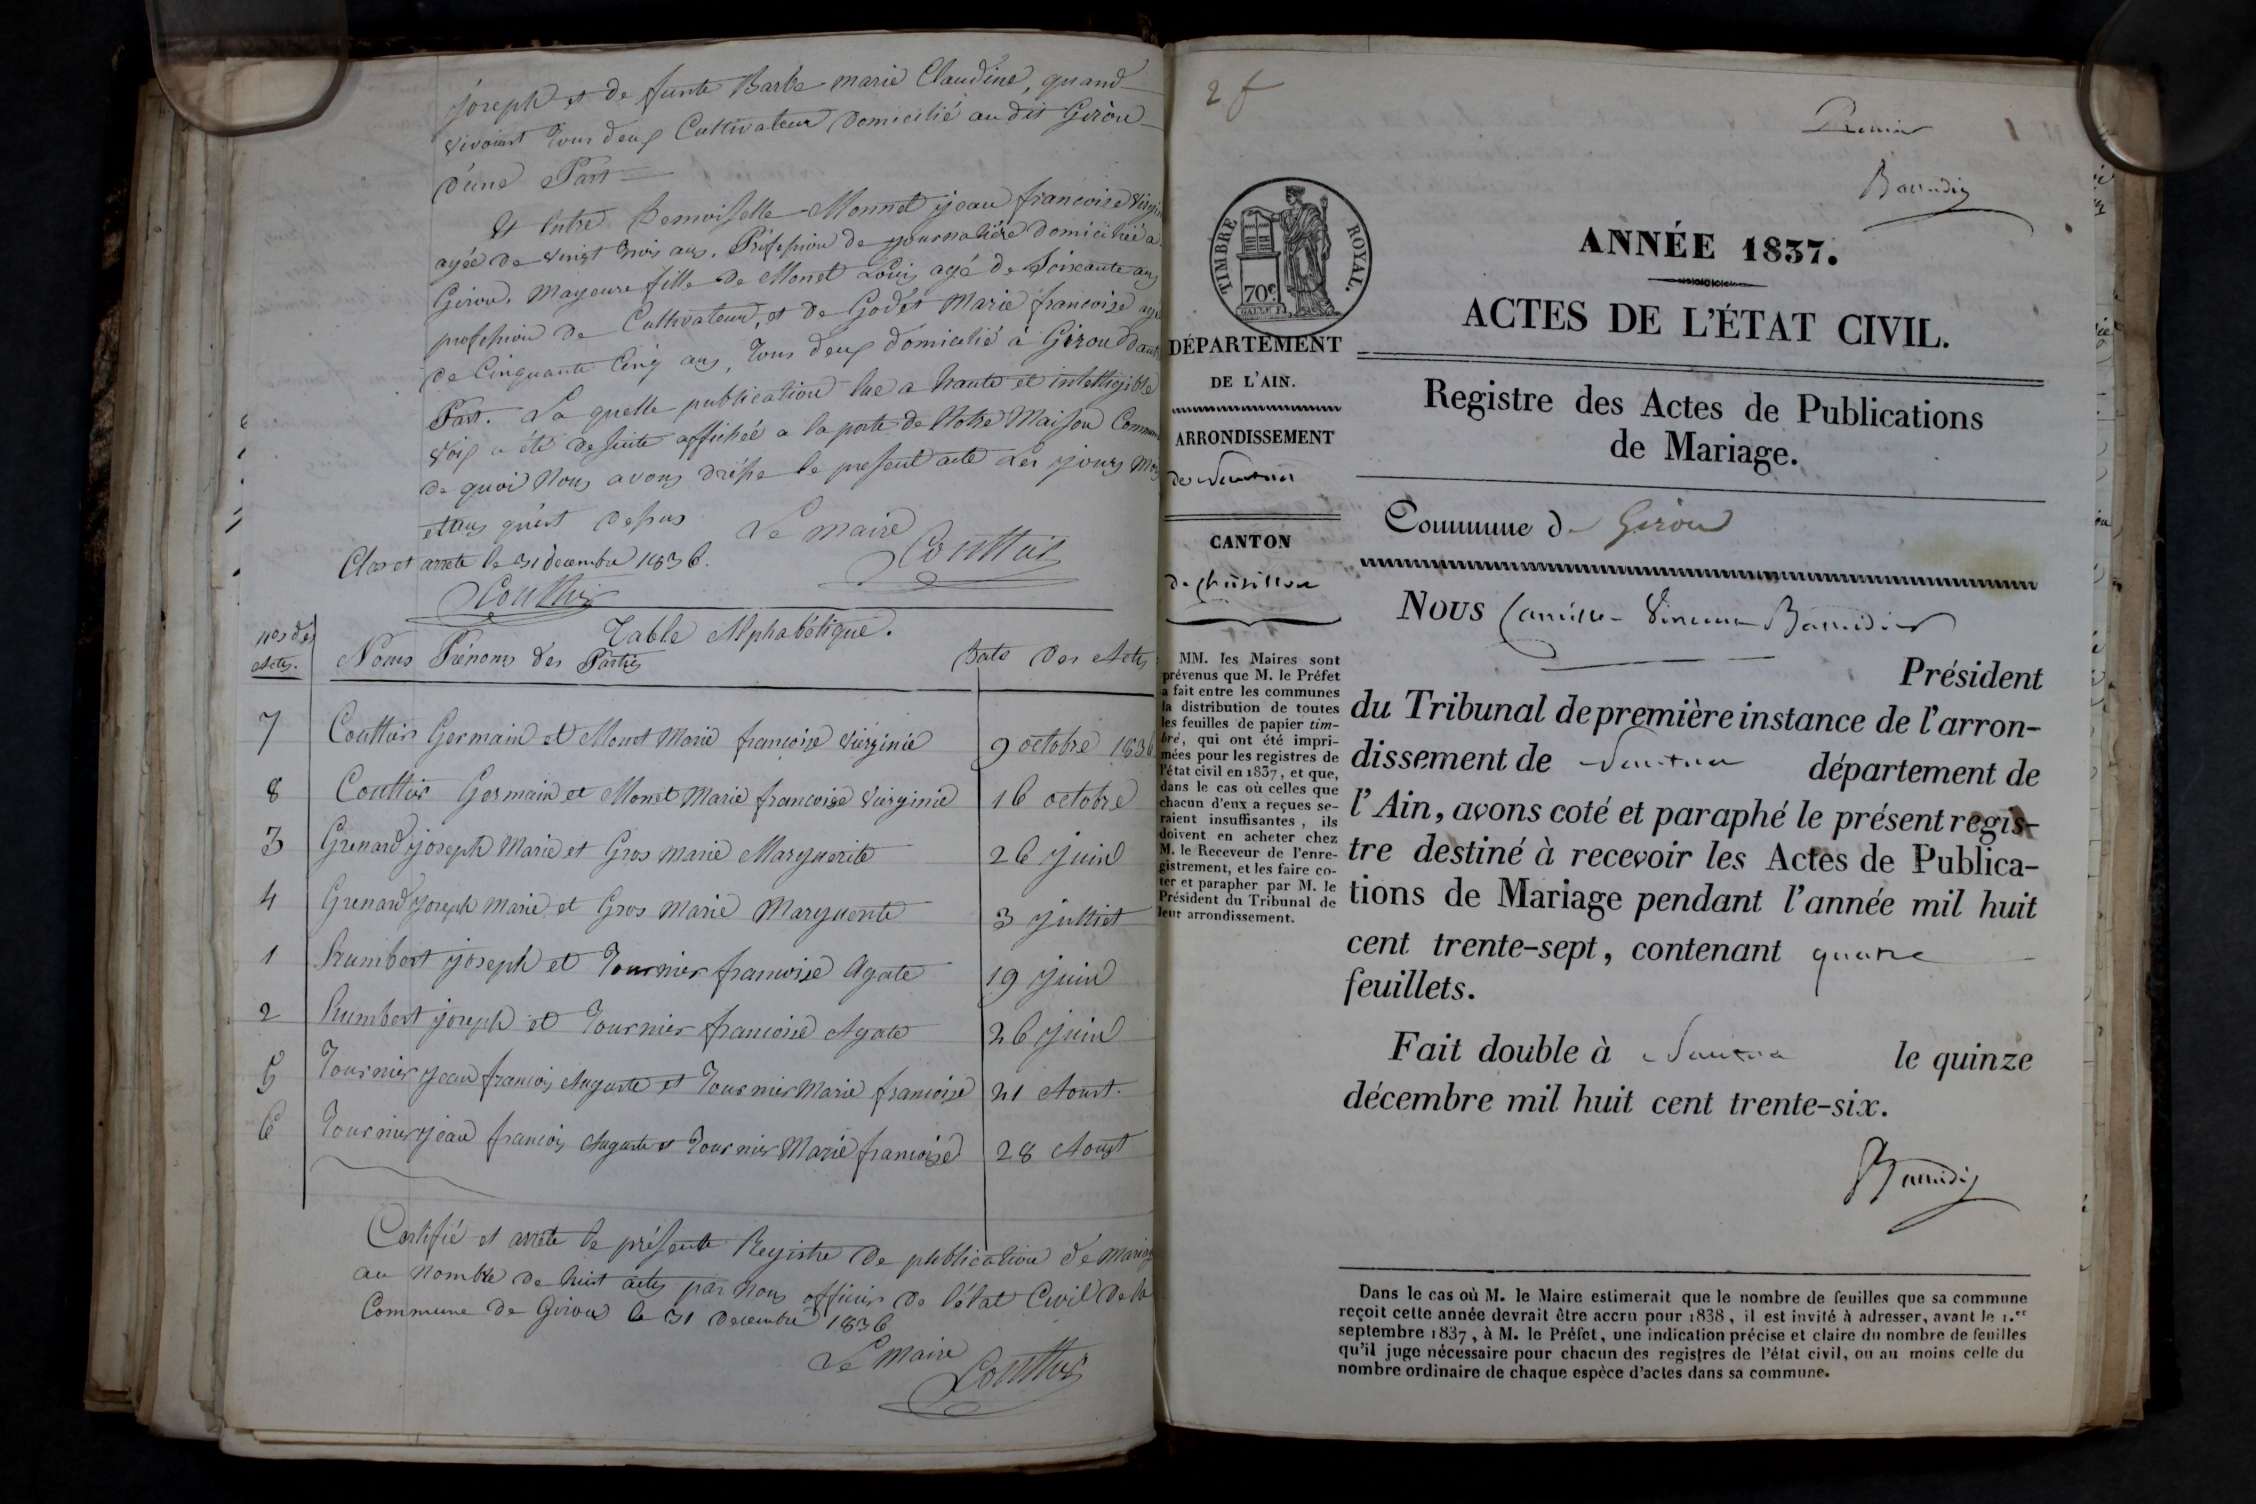 joseph et de funte Barbe marie Claudine, quand
vivoient tous deux Cultivateur domicilié au dit Giron
d'une Part
Et Entre Demoiselle Monnet jean francoise Virgin
agée de vingt trois ans. Profession de journalière domiciliée a
Giron. Mayeure fille de Monet Louis agé de Soixante ans
profession de Cultivateur, et de Godet Marie francoise agé
de Cinquante Cinq ans, tous deux domicilié à Giron d'autr
Part. La quelle publication lue a haute et intelligible
voix a été de suite affichée a la porte de Notre Maison Commun
de quoi Nous avons drèsse le present acte Les jours Moi
et ans qu'est dessus Le maire
Coutturier
Clos et arrete le 31 decembre 1836.
Table Alphabétique.
Nos des Actes.
Noms Prénoms des Parties
Date des Actes
7 Couttier Germain et Monet Marie francoise Virginie 9 octobre 1836
8 Couttier Germain et Monet Marie francoise Virginie 16 octobre
3 Grenard joseph Marie et Gros marie Marguerite 26 juin
4 Grenard joseph Marie et Gros Marie Marguerite 3 julliet
1 Humbert joseph et Tournier francoise Agate 19 juin
2 Humbert joseph et Tournier francoise Agate 26 juin
5 Tournier jean francois Auguste et Tournier Marie francoise 21 Aoust.
6 Tournier jean francois Auguste et Tournier Marie francoise 28 Aoust
Certifié et arrete le présente Registre de publication de Mariag
au Nombre de huit actes par Nous officier de l'état Civil de la
Commune de Giron le 31 decembre 1836
Le maire
2 f
1
TIMBRE ROYAL.
70c
ANNÉE 1837.
ACTES DE L'ÉTAT CIVIL.
DÉPARTEMENT
DE L'AIN.
ARRONDISSEMENT
de Nantua
CANTON
de Chatillon
MM. les Maires sont
prévenus que M. le Préfet
a fait entre les communes
la distribution de toutes
les feuilles de papier tim-
bré, qui ont été impri-
mées pour les registres de
l'état civil en 1837, et que,
dans le cas où celles que
chacun d'eux a reçues se-
raient insuffisantes, ils
doivent en acheter chez
M. le Receveur de l'enre-
gistrement, et les faire co-
ter et parapher par M. le
Président du Tribunal de
leur arrondissement.
Registre des Actes de Publications
de Mariage.
Commune de Giron
NOUS Camille-Vincent
Président
du Tribunal de première instance de l'arron-
dissement de Nantua département de
l'Ain, avons coté et paraphé le présent regis-
tre destiné à recevoir les Actes de Publica-
tions de Mariage pendant l'année mil huit
cent trente-sept, contenant quatre
feuillets.
Fait double à Nantua le quinze
décembre mil huit cent trente-six.
Dans le cas où M. le Maire estimerait que le nombre de feuilles que sa commune
reçoit cette année devrait être accru pour 1838, il est invité à adresser, avant le 1.er
septembre 1837, à M. le Préfet, une indication précise et claire du nombre de feuilles
qu'il juge nécessaire pour chacun des registres de l'état civil, ou au moins celle du
nombre ordinaire de chaque espèce d'actes dans sa commune.